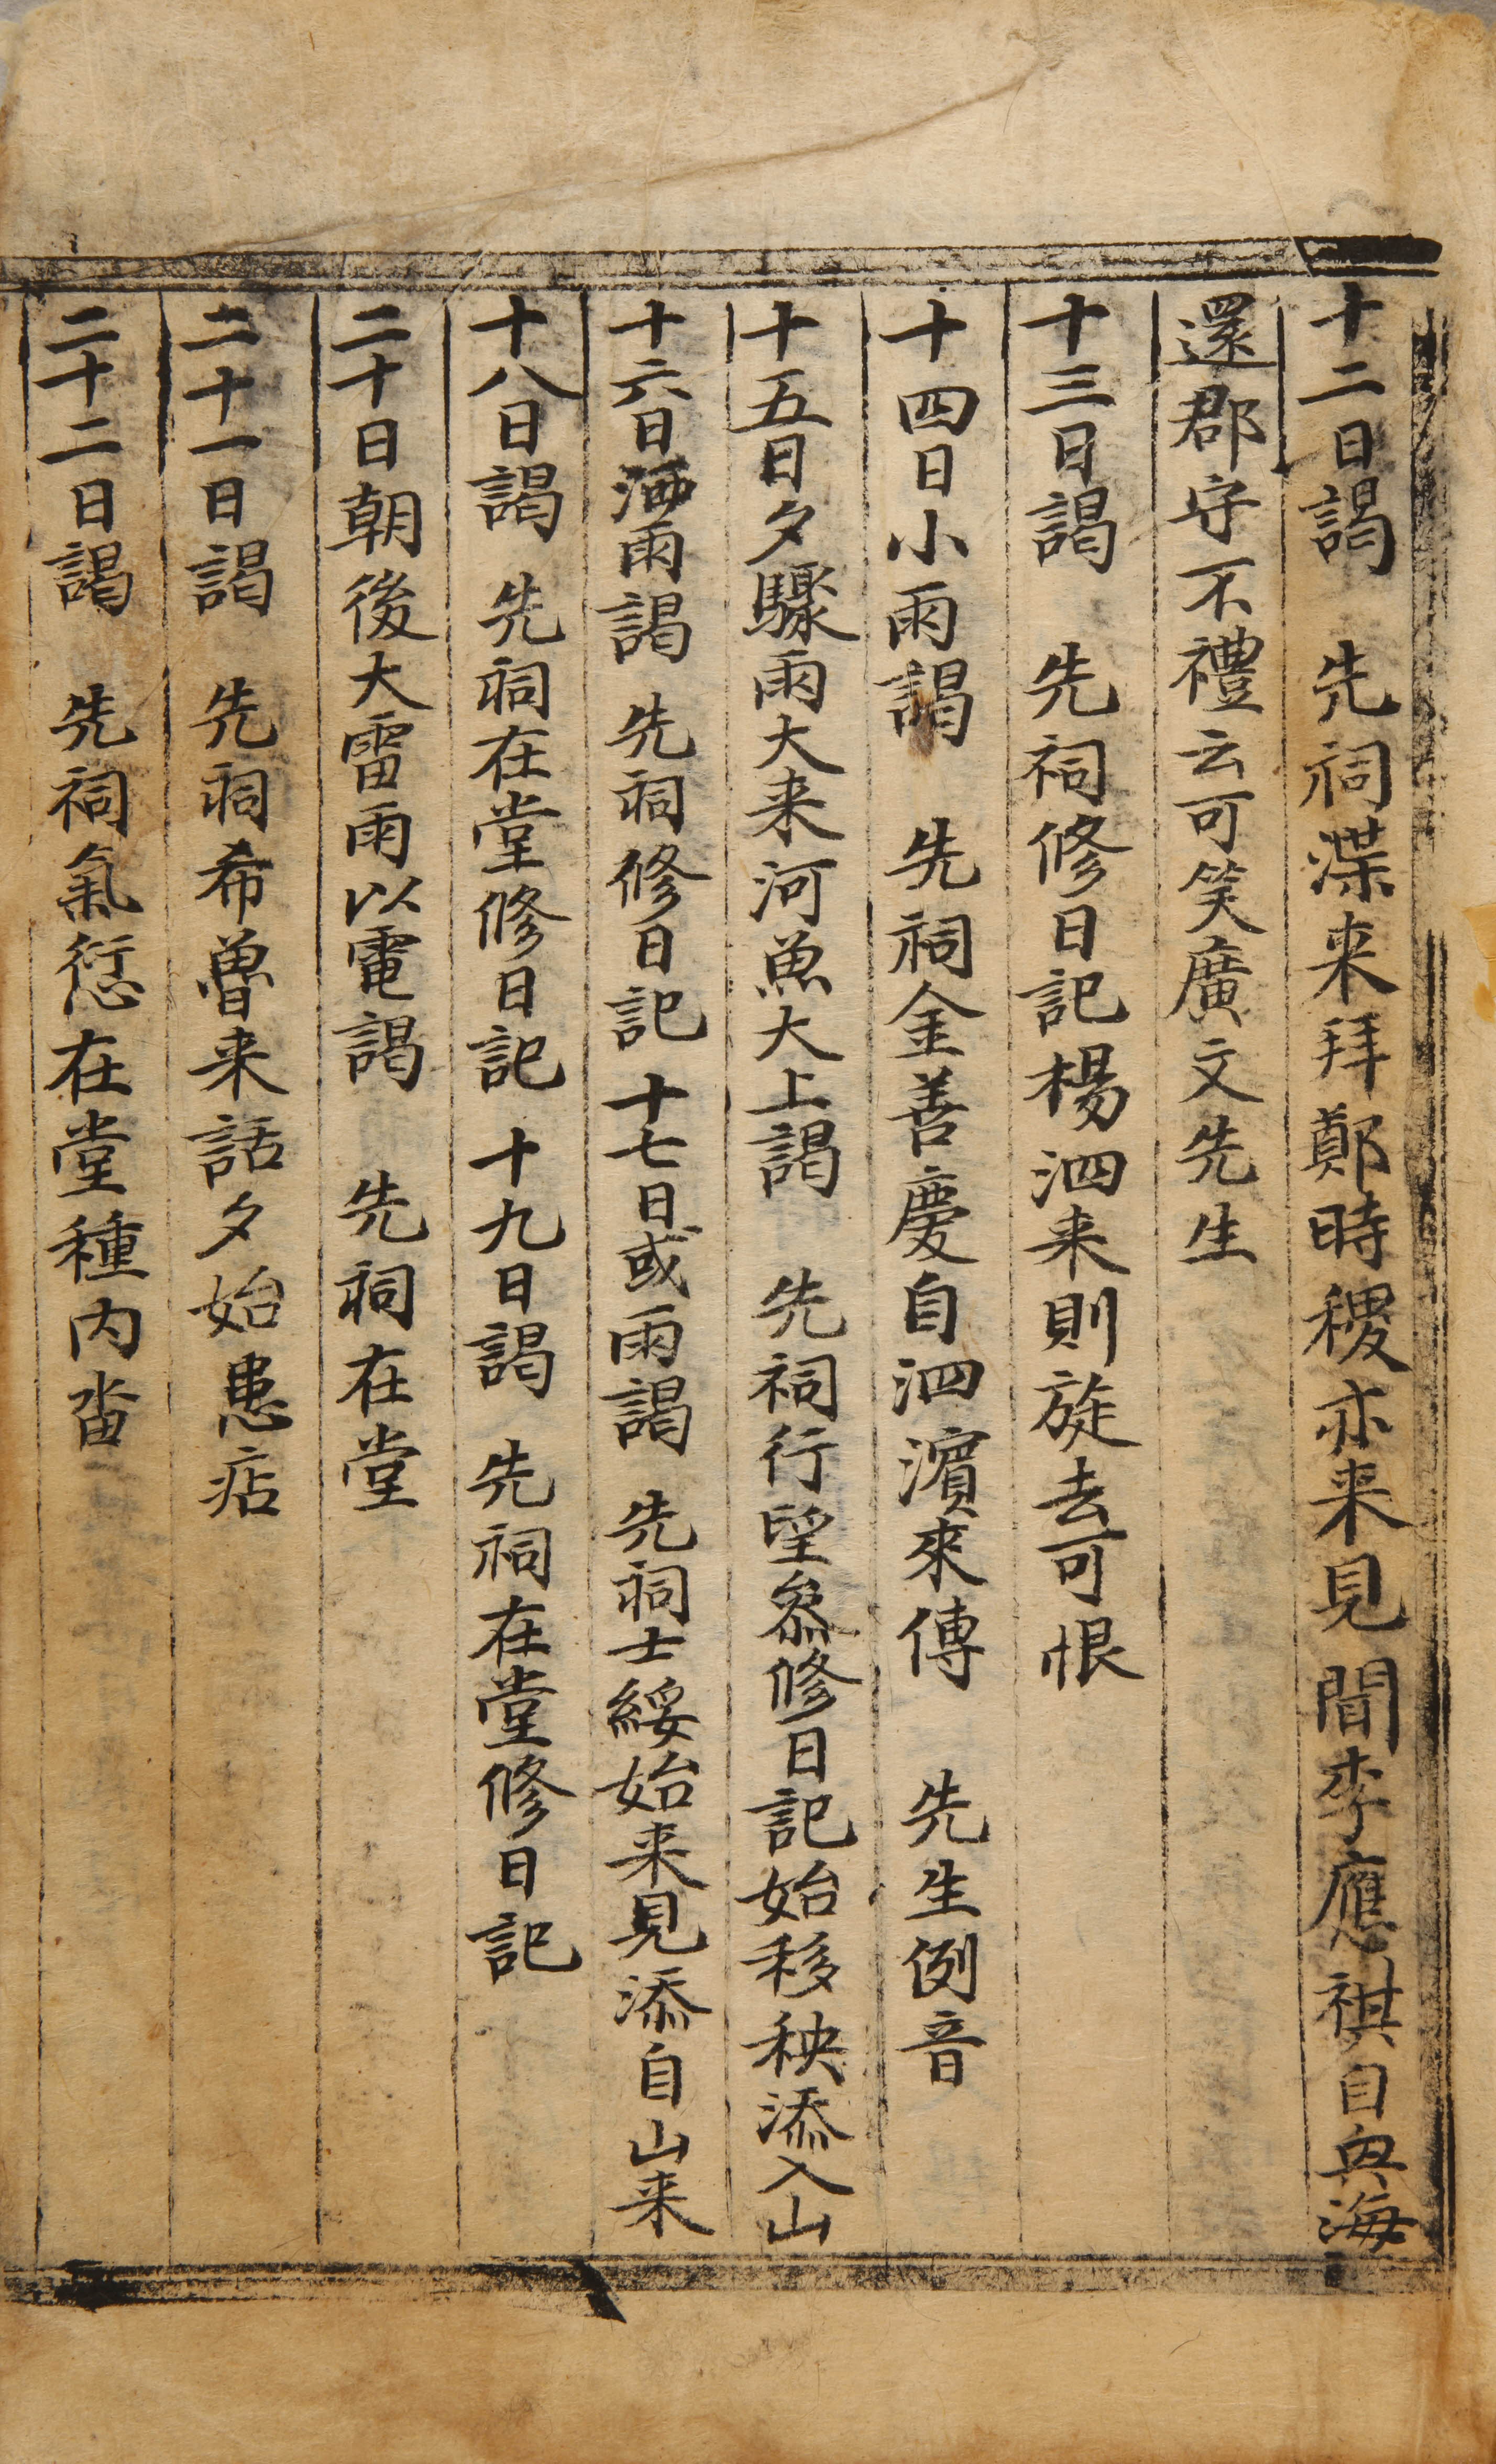 十二日謁　先祠渫来拜鄭時稷亦来見聞李應祺自與海
還郡守不禮云可笑廣文先生
十三日謁　先祠修日記楊泗来則旋去可恨
十四日小雨謁　先祠金善慶自泗濱來傳　先生例音
十五日夕驟雨大来河魚大上謁　先祠行望叅修日記始移秧添入山
十六日洒雨謁　先祠修日記　十七日或雨謁　先祠士綏始来見添自山来
十八日謁　先祠在堂修日記　十九日謁　先祠在堂修日記
二十日朝後大雷雨以電謁　先祠在堂
二十一日謁　先祠希曾来話夕始患痁
二十二日謁　先祠氣愆在堂種内畓